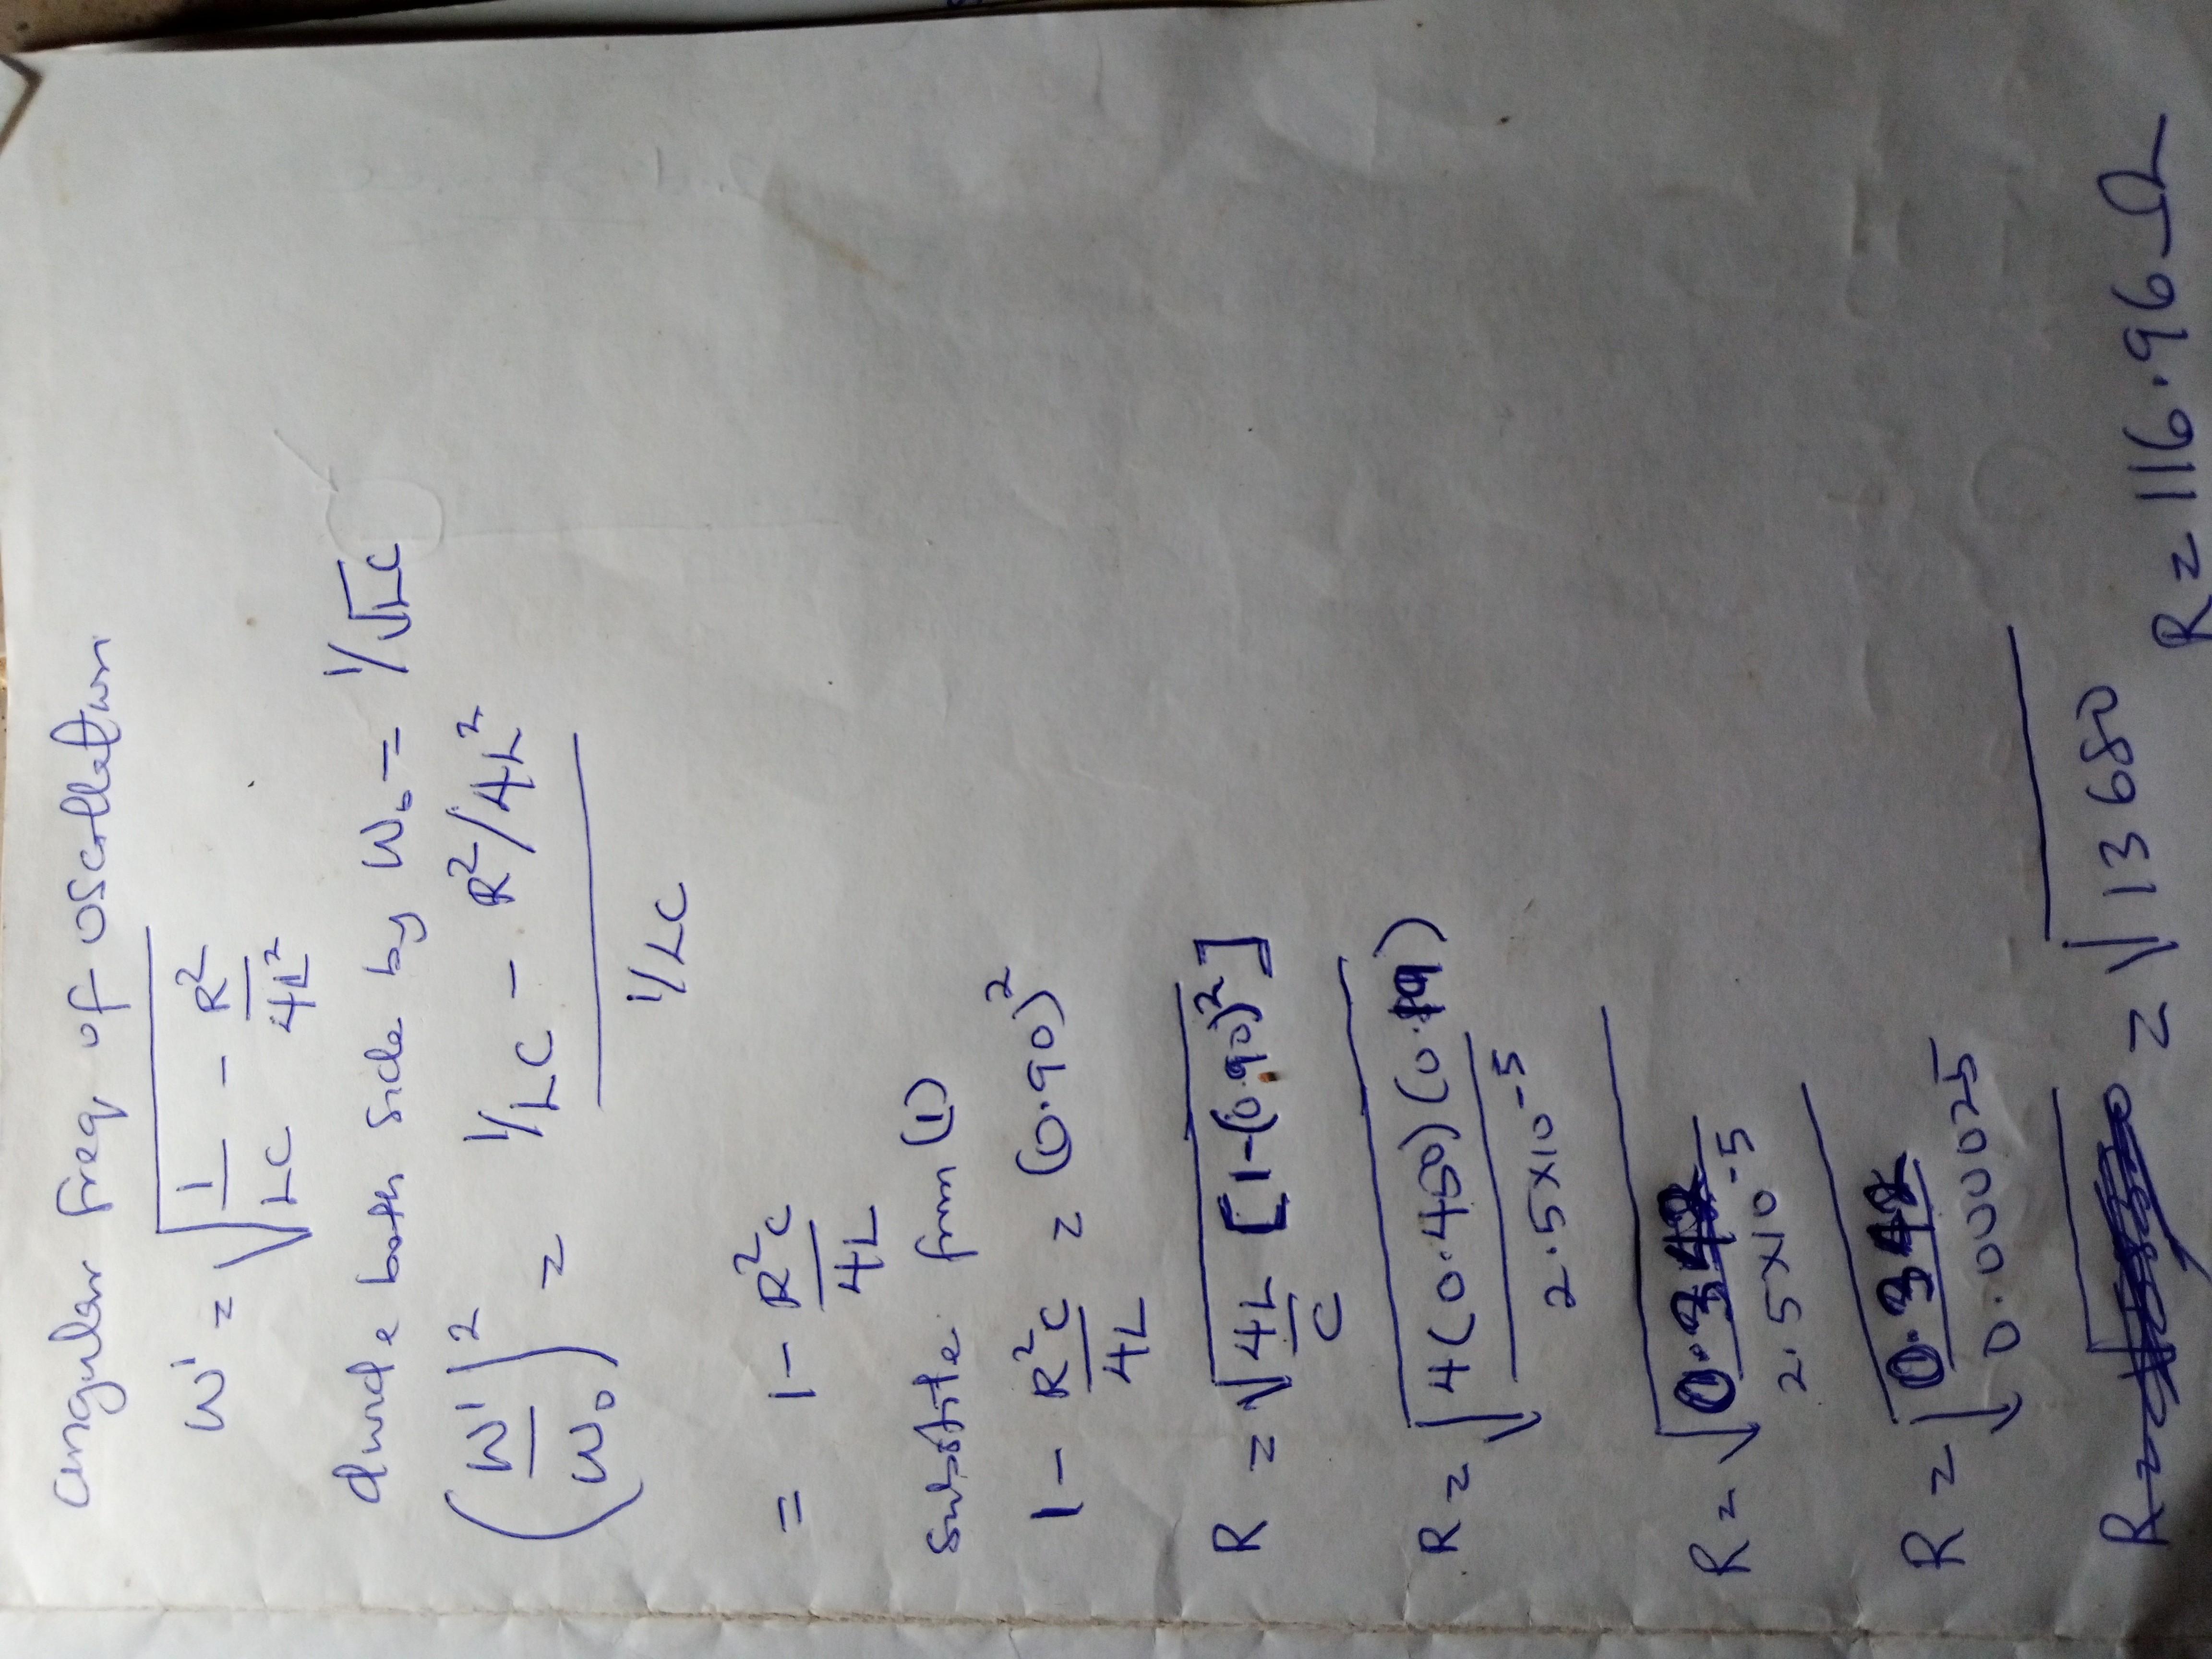 angular freq of oscillation
W' = √(1/LC - R²/4L²)
divide both side by W₀ = 1/√LC
(W'/W₀)² = (1/LC - R²/4L²)/(1/LC)
= 1 - R²C/4L
Substite from (1)
1 - R²C/4L = (0.90)²
R = √(4L/C [1-(0.90)²])
R = √(4(0.450)(0.19)/2.5×10⁻⁵)
R = √(0.342/2.5×10⁻⁵)
R = √(0.342/0.000025)
= √13680
R = 116.96Ω